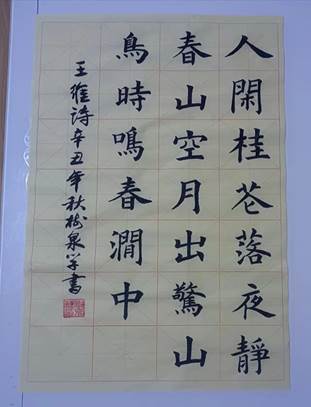 人閑桂花落夜靜
春山空月出驚山
鳥時鳴春澗中
王維詩辛丑年秋樹泉学書